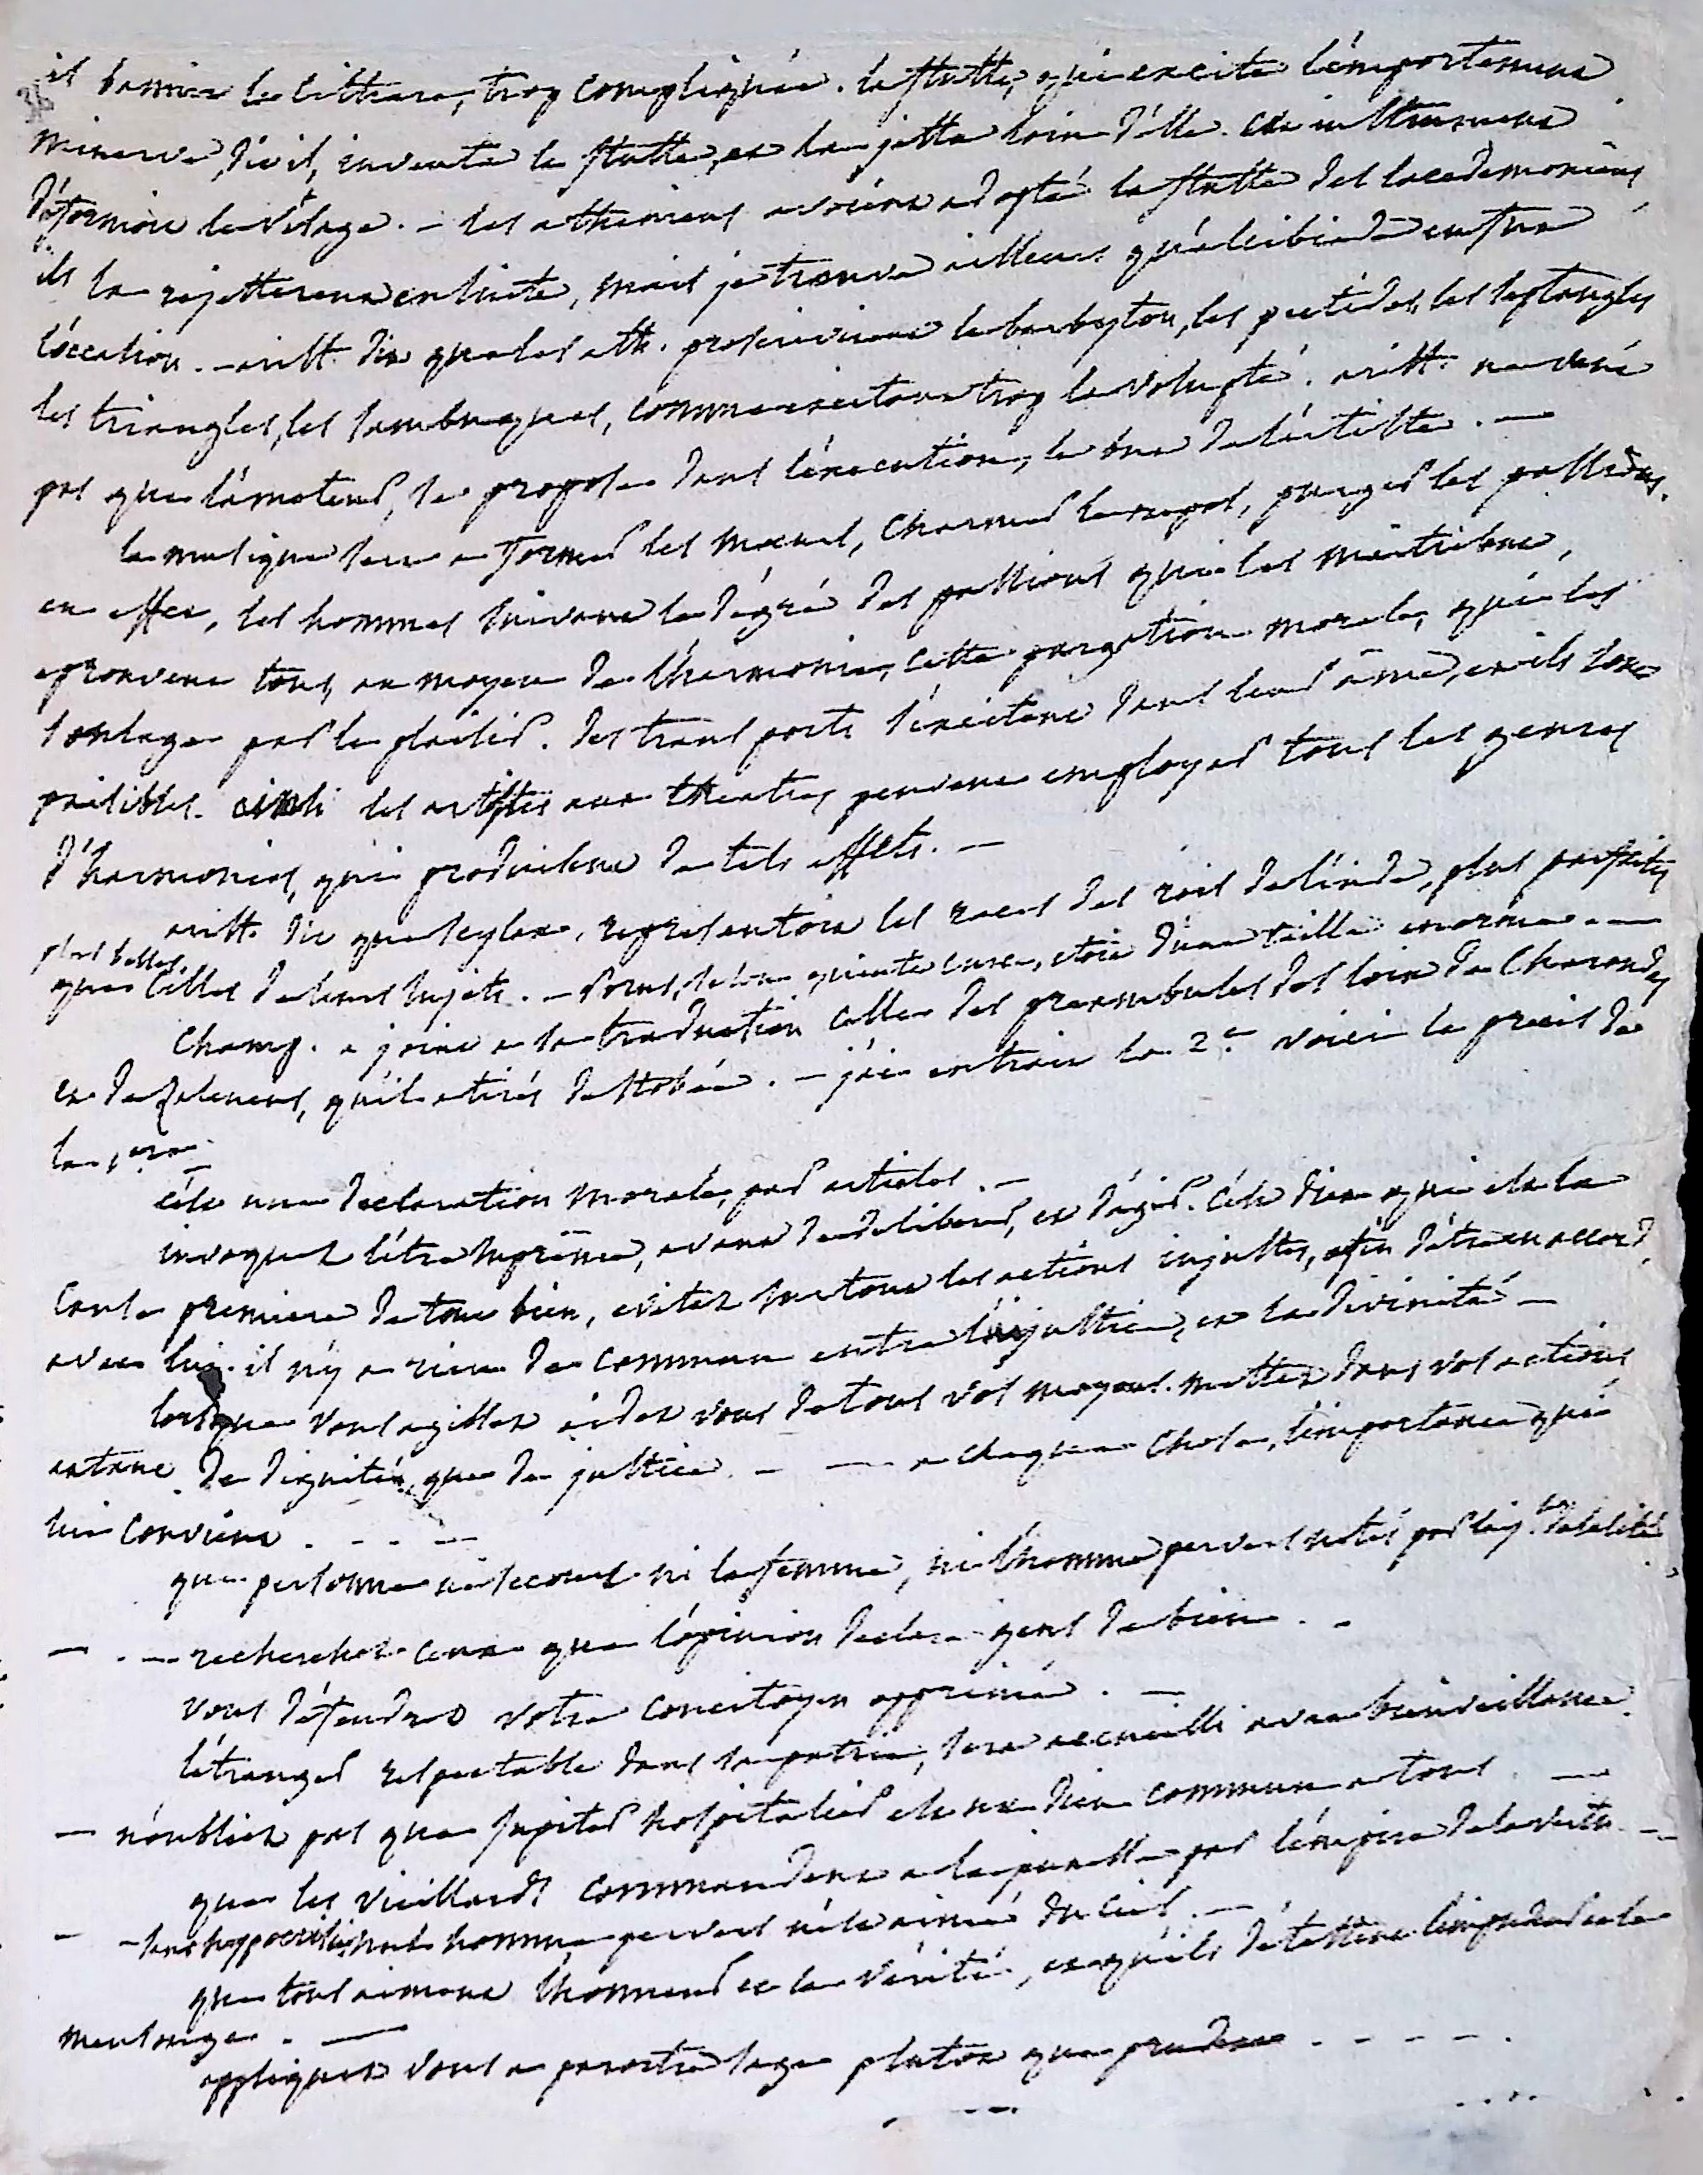 il bannir la cithare, trop compliquée. la flutte, qui excite l'emportement
minerve, dit-il, inventa la flutte, et la jetta loin d'elle. cet instrument
déformoit le visage. – les atheniens avoient adopté la flutte des lacedemoniens,
ils la rejetterent ensuite, mais je trouve ailleurs qu'alcibiade en fut
l'occasion. – arist. dit que les ath. proscrivirent le barbyton, les pectides, les heptangles
les triangles, les sambuques, comme excitant trop la volupté. arist. ne veut
pas que l'amateur, se propose dans l'execution, le but de l'artiste. –
la musique sert a former les mœurs, charmer le repos, purger les passions.
en effet, les hommes suivant le dégré des passions qui les maitrisent,
eprouvent tous, au moyen de l'harmonie, cette purgation morale, qui les
soulage par le plaisir. des transports s'excitent dans leur âme, et ils sont
paisibles. ainsi les artistes aux theatres peuvent employer tous les genres
d'harmonies, qui produisent de tels effets. –
arist. dit que scylax, representoit les races des rois de l'inde, plus parfaites
plus belles
que celles de leurs sujets. – Porus, selon quinte curce, etoit d'une taille enorme. –
Champ. a joint a sa traduction celle des preambules des loix de Charondas
et de Zaleucus, qu'il a tirés de stobée. – j'ai extrait la 2e. voici le precis de
la 1ere.
c'est une declaration morale, par articles. –
invoquez l'être suprême, avant de deliberer, et d'agir. c'est dieu qui est la
cause premiere de tout bien, evitez surtout les actions injustes, afin d'être en accord
avec lui. il n'y a rien de commun entre l'injustice, et la divinité –
lorsque vous agissez aidez vous de tous vos moyens. mettez dans vos actions
autant de dignité, que de justice. – – a chaque chose, l'importance qui
lui convient . – – –
que personne ne secoure ni la femme, ni l'homme pervers notés par la
– . – recherchez ceux que l'opinion declare gens de bien . –
vous défendrez votre concitoyen opprimé . –
l'étranger respectable dans sa patrie, sera accueilli avec bienveillance.
– n'oubliez pas que Jupiter hospitalier est un dieu commun a tous . –
que les vieillards commandent a la jeunesse par l'empire de la vertu –
– – sans hypocrisie, nul homme pervers n'est aimé du ciel . –
que tous aiment l'honneur et la vérité, et qu'ils detestent l'impudeur et le
mensonge . –
appliquez vous a paroitre sage plutot que prudent . – – – – .